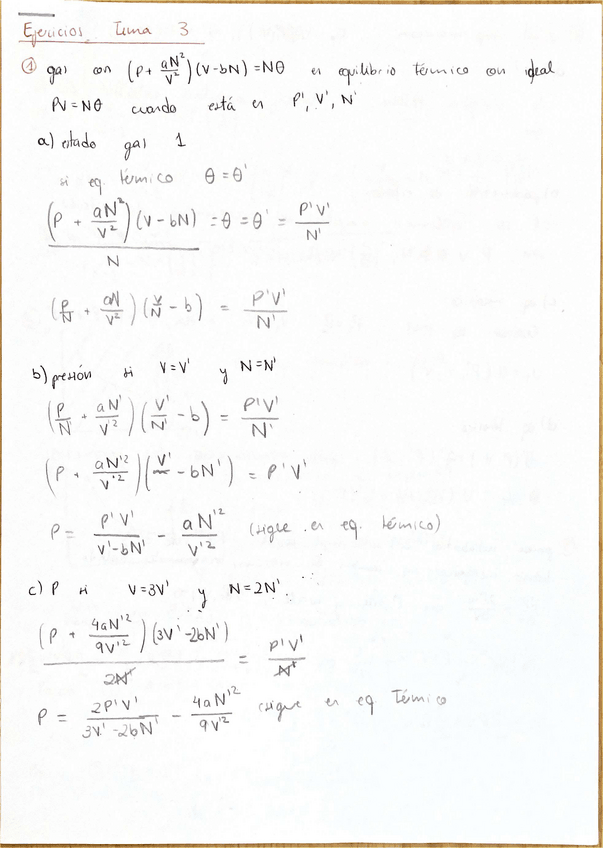 Ejercicios Tema 3
① gas con (P + aN²/V²)(V-bN) = Nθ en equilibrio térmico con ideal
PV = Nθ cuando está en P', V', N'
a) estado gas 1
si eq. térmico θ = θ'
(P + aN²/V²)(V-bN)/N = θ = θ' = P'V'/N'
(P/N + aN/V²)(V/N - b) = P'V'/N'
b) presión si V=V' y N=N'
(P/N' + aN'/V'²)(V'/N' - b) = P'V'/N'
(P + aN'²/V'²)(V' - bN') = P'V'
P = P'V'/(V'-bN') - aN'²/V'² (sigue en eq. térmico)
c) P si V=3V' y N=2N'.
(P + 4aN'²/9V'²)(3V'-2bN')/2N' = P'V'/N'
P = 2P'V'/(3V'-2bN') - 4aN'²/9V'² (sigue en eq térmico